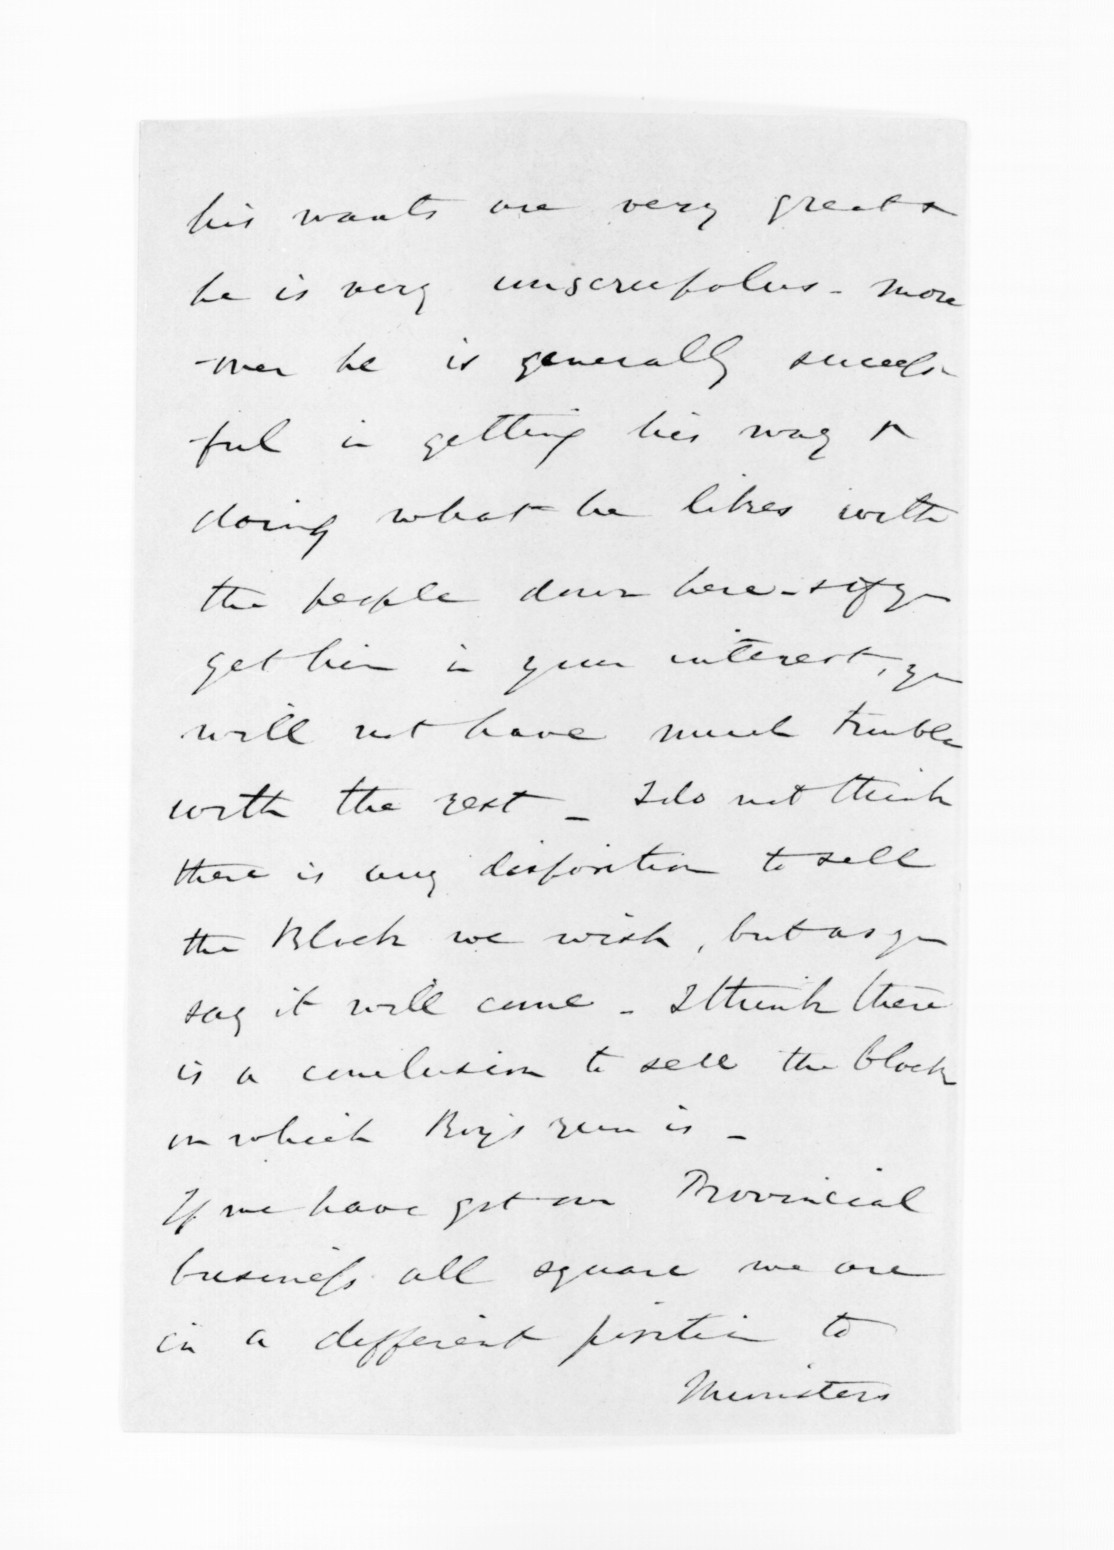 his wants are very great &
he is very unscrupolus - more
-over he is generally success-
-ful in getting his way &
doing what he likes with
the people down here - & if you
get him in your interest, you
will not have much trouble
with the rest - I do not think
there is any disposition to sell
the Block we wish, but as you
say it will come - I think there
is a conclusion to sell the block
on which Roy's run is -
If we have got our Provincial
business all square we are
in a different position to
Ministers